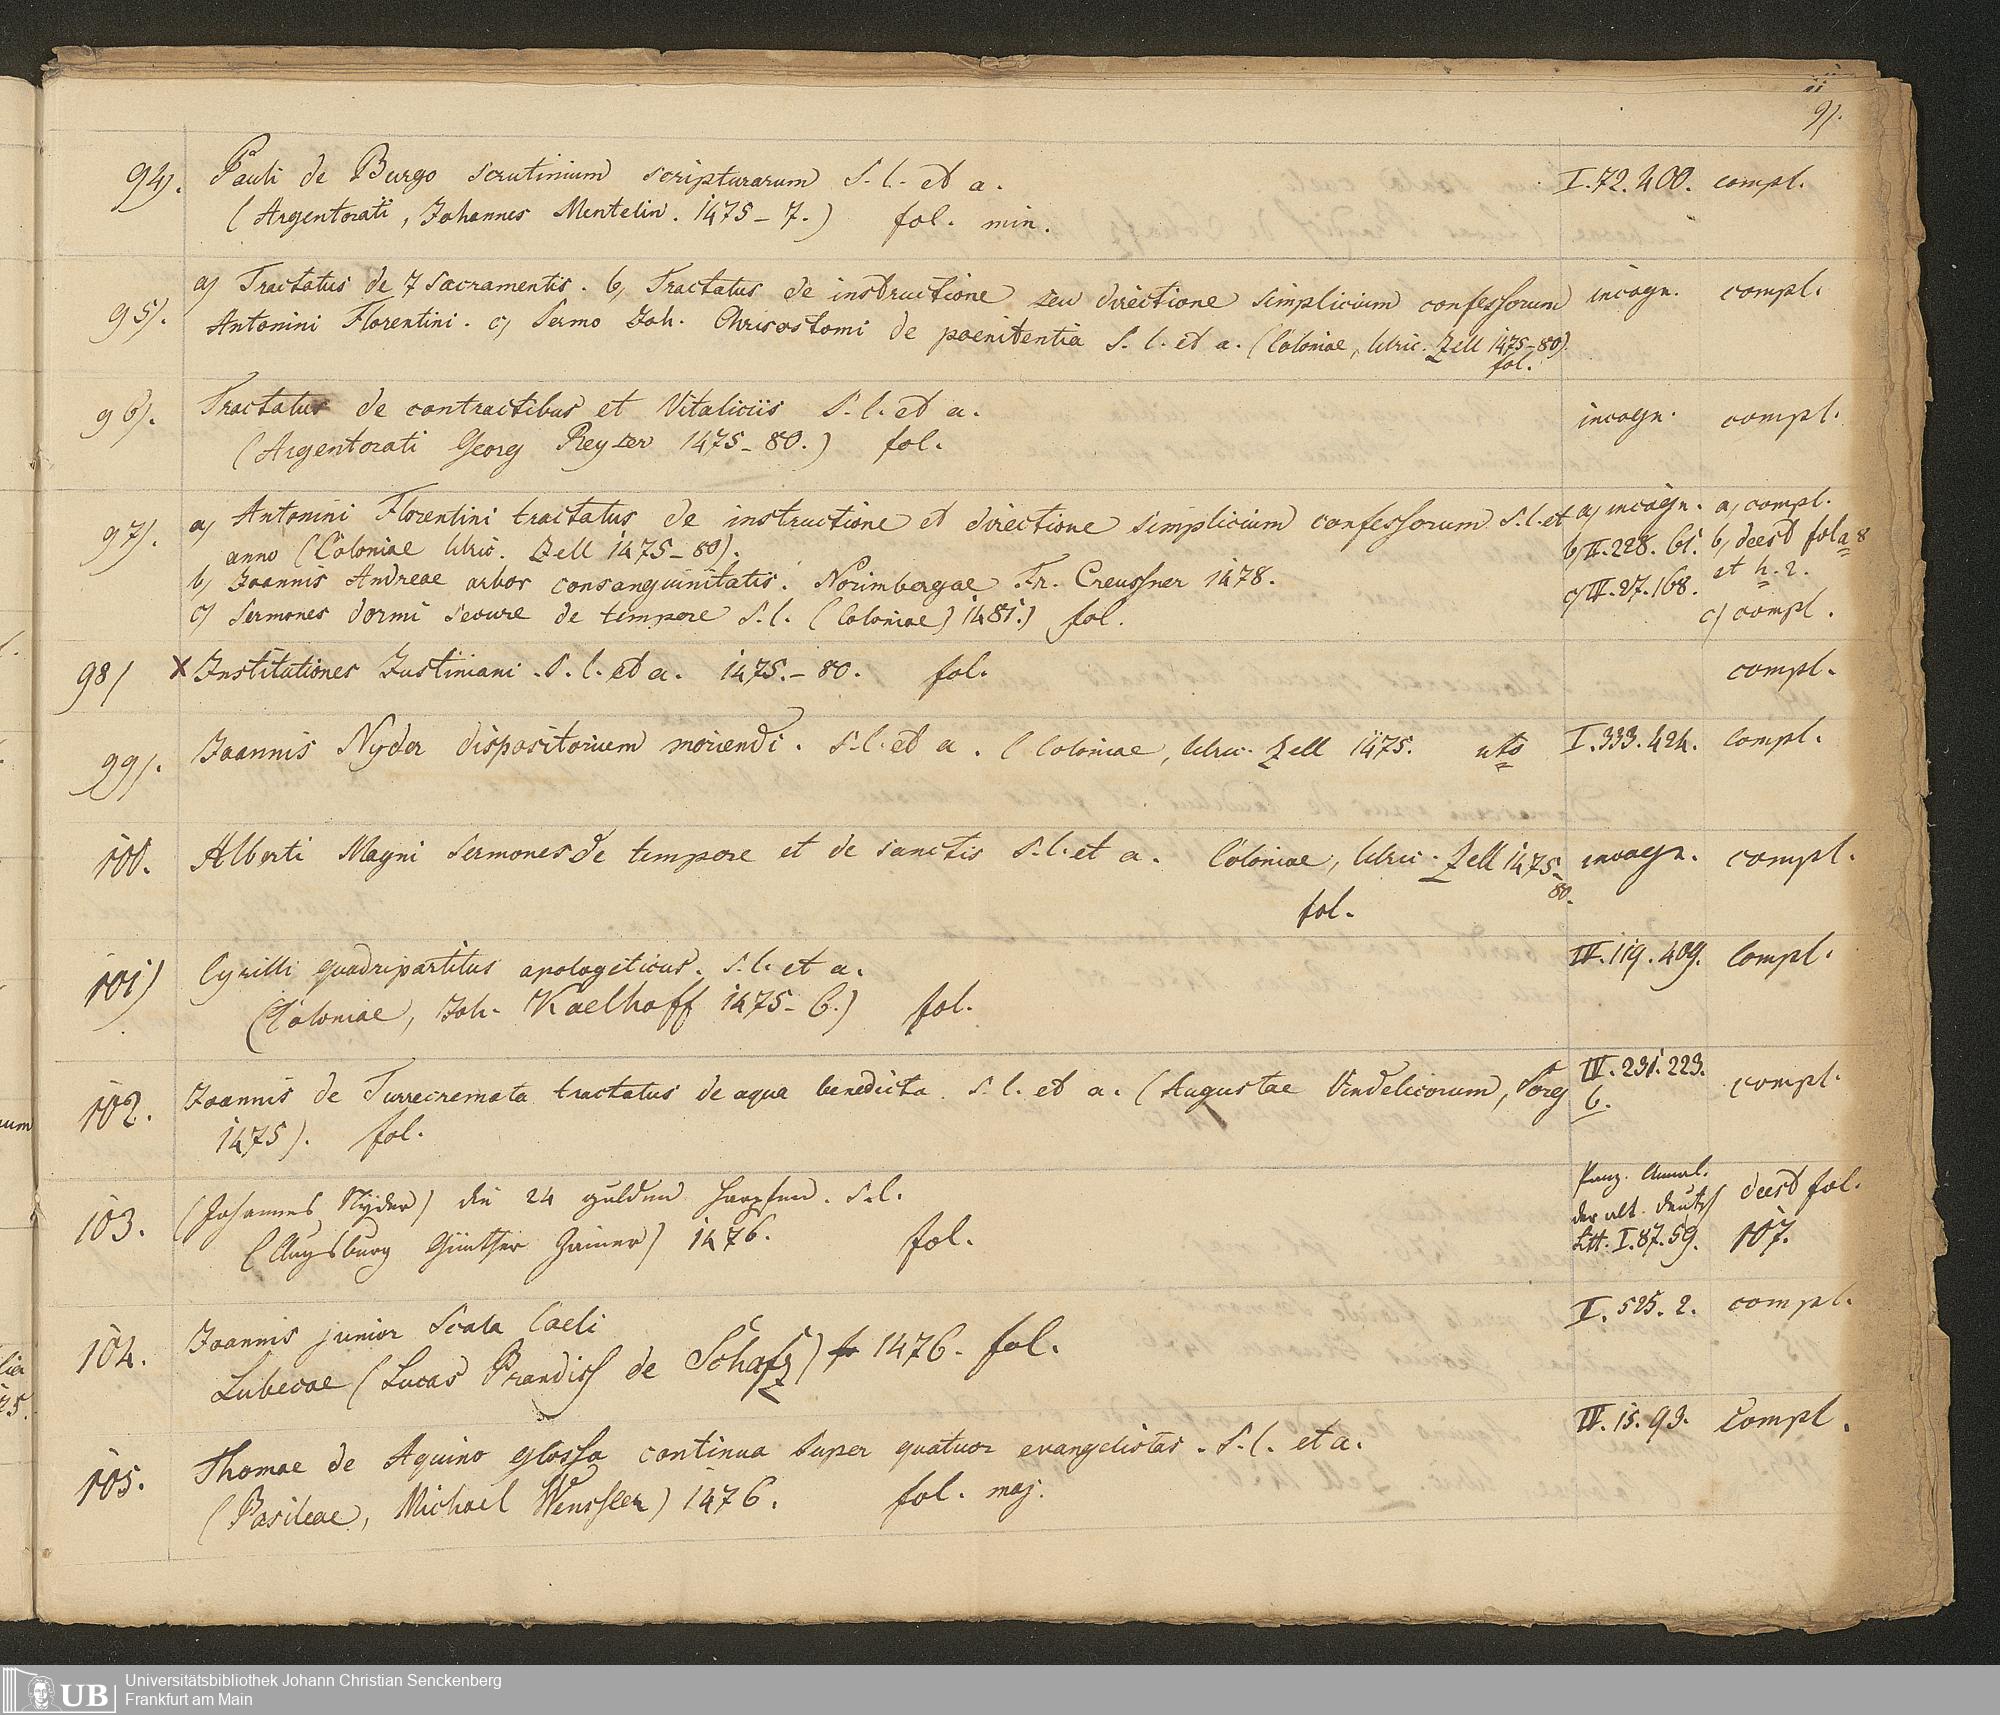 9).
94). Pauli de Burgo scrutinium scripturarum S. l. et a. I. 72. 400. compl.
(Argentorati, Johannes Mentelin. 1475-7.) fol. min.
95). a) Tractatus de 7 sacramentis. b) Tractatus de instructione seu directione simplicium confessorum incogn. compl.
Antonini Florentini. c) Sermo Joh. Chrisostomi de poenitentia S. l. et a. (Coloniae, Ulric. Zell 1475-80)
fol.
96). Tractatus de contractibus et Vitaliciis S. l. et a. incogn. compl.
(Argentorati Georg Reyser 1475-80.) fol.
97). a) Antonini Florentini tractatus de instructione et directione simplicium confessorum S. l. et a) incogn. a) compl.
anno (Coloniae Ulric. Zell 1475-80). b) II. 228. 61. b) deest fol a 8
b) Joannis Andreae arbor consanguinitatis. Norimbergae Fr. Creussner 1478. c) IV. 27. 168. et h. 2.
c) Sermones dormi secure de tempore S. l. (Coloniae) 1481.) fol. c) compl.
98) x Institutiones Justiniani. S. l. et a. 1475.-80. fol. compl.
99). Joannis Nyder dispositorium moriendi. S. l. et a. (Coloniae, Ulric. Zell 1475. I. 333. 424. compl.
100. Alberti Magni Sermones de tempore et de sanctis S. l. et a. Coloniae, Ulric. Zell 1475- incogn. compl.
80.
fol.
101) Cyrilli quadripartitus apologeticus. S. l. et a. IV. 119. 409. compl.
(Coloniae, Joh. Koelhoff 1475-6.) fol.
102. Joannis de Turrecremata tractatus de aqua benedicta. S. l. et a. (Augustae Vindelicorum, Sorg IV. 231. 223. compl.
1475). fol. b.
103. (Johannes Nyder) die 24 gulden Harpfen. S. l. Panz. Annal. deest fol.
(Augsburg Günther Zainer) 1476. fol. der ält. deutsch 107.
Litt. I. 87. 59.
104. Joannis junior Scala Caeli I. 525. 2. compl.
Lubecae (Lucas Brandiss de Schafz) 1476. fol.
105. Thomae de Aquino glossa continua super quatuor evangelistas. S. l. et a. IV. 15. 93. Compl.
(Basileae, Michael Wenssler) 1476. fol. maj.
Universitätsbibliothek Johann Christian Senckenberg
Frankfurt am Main
UB